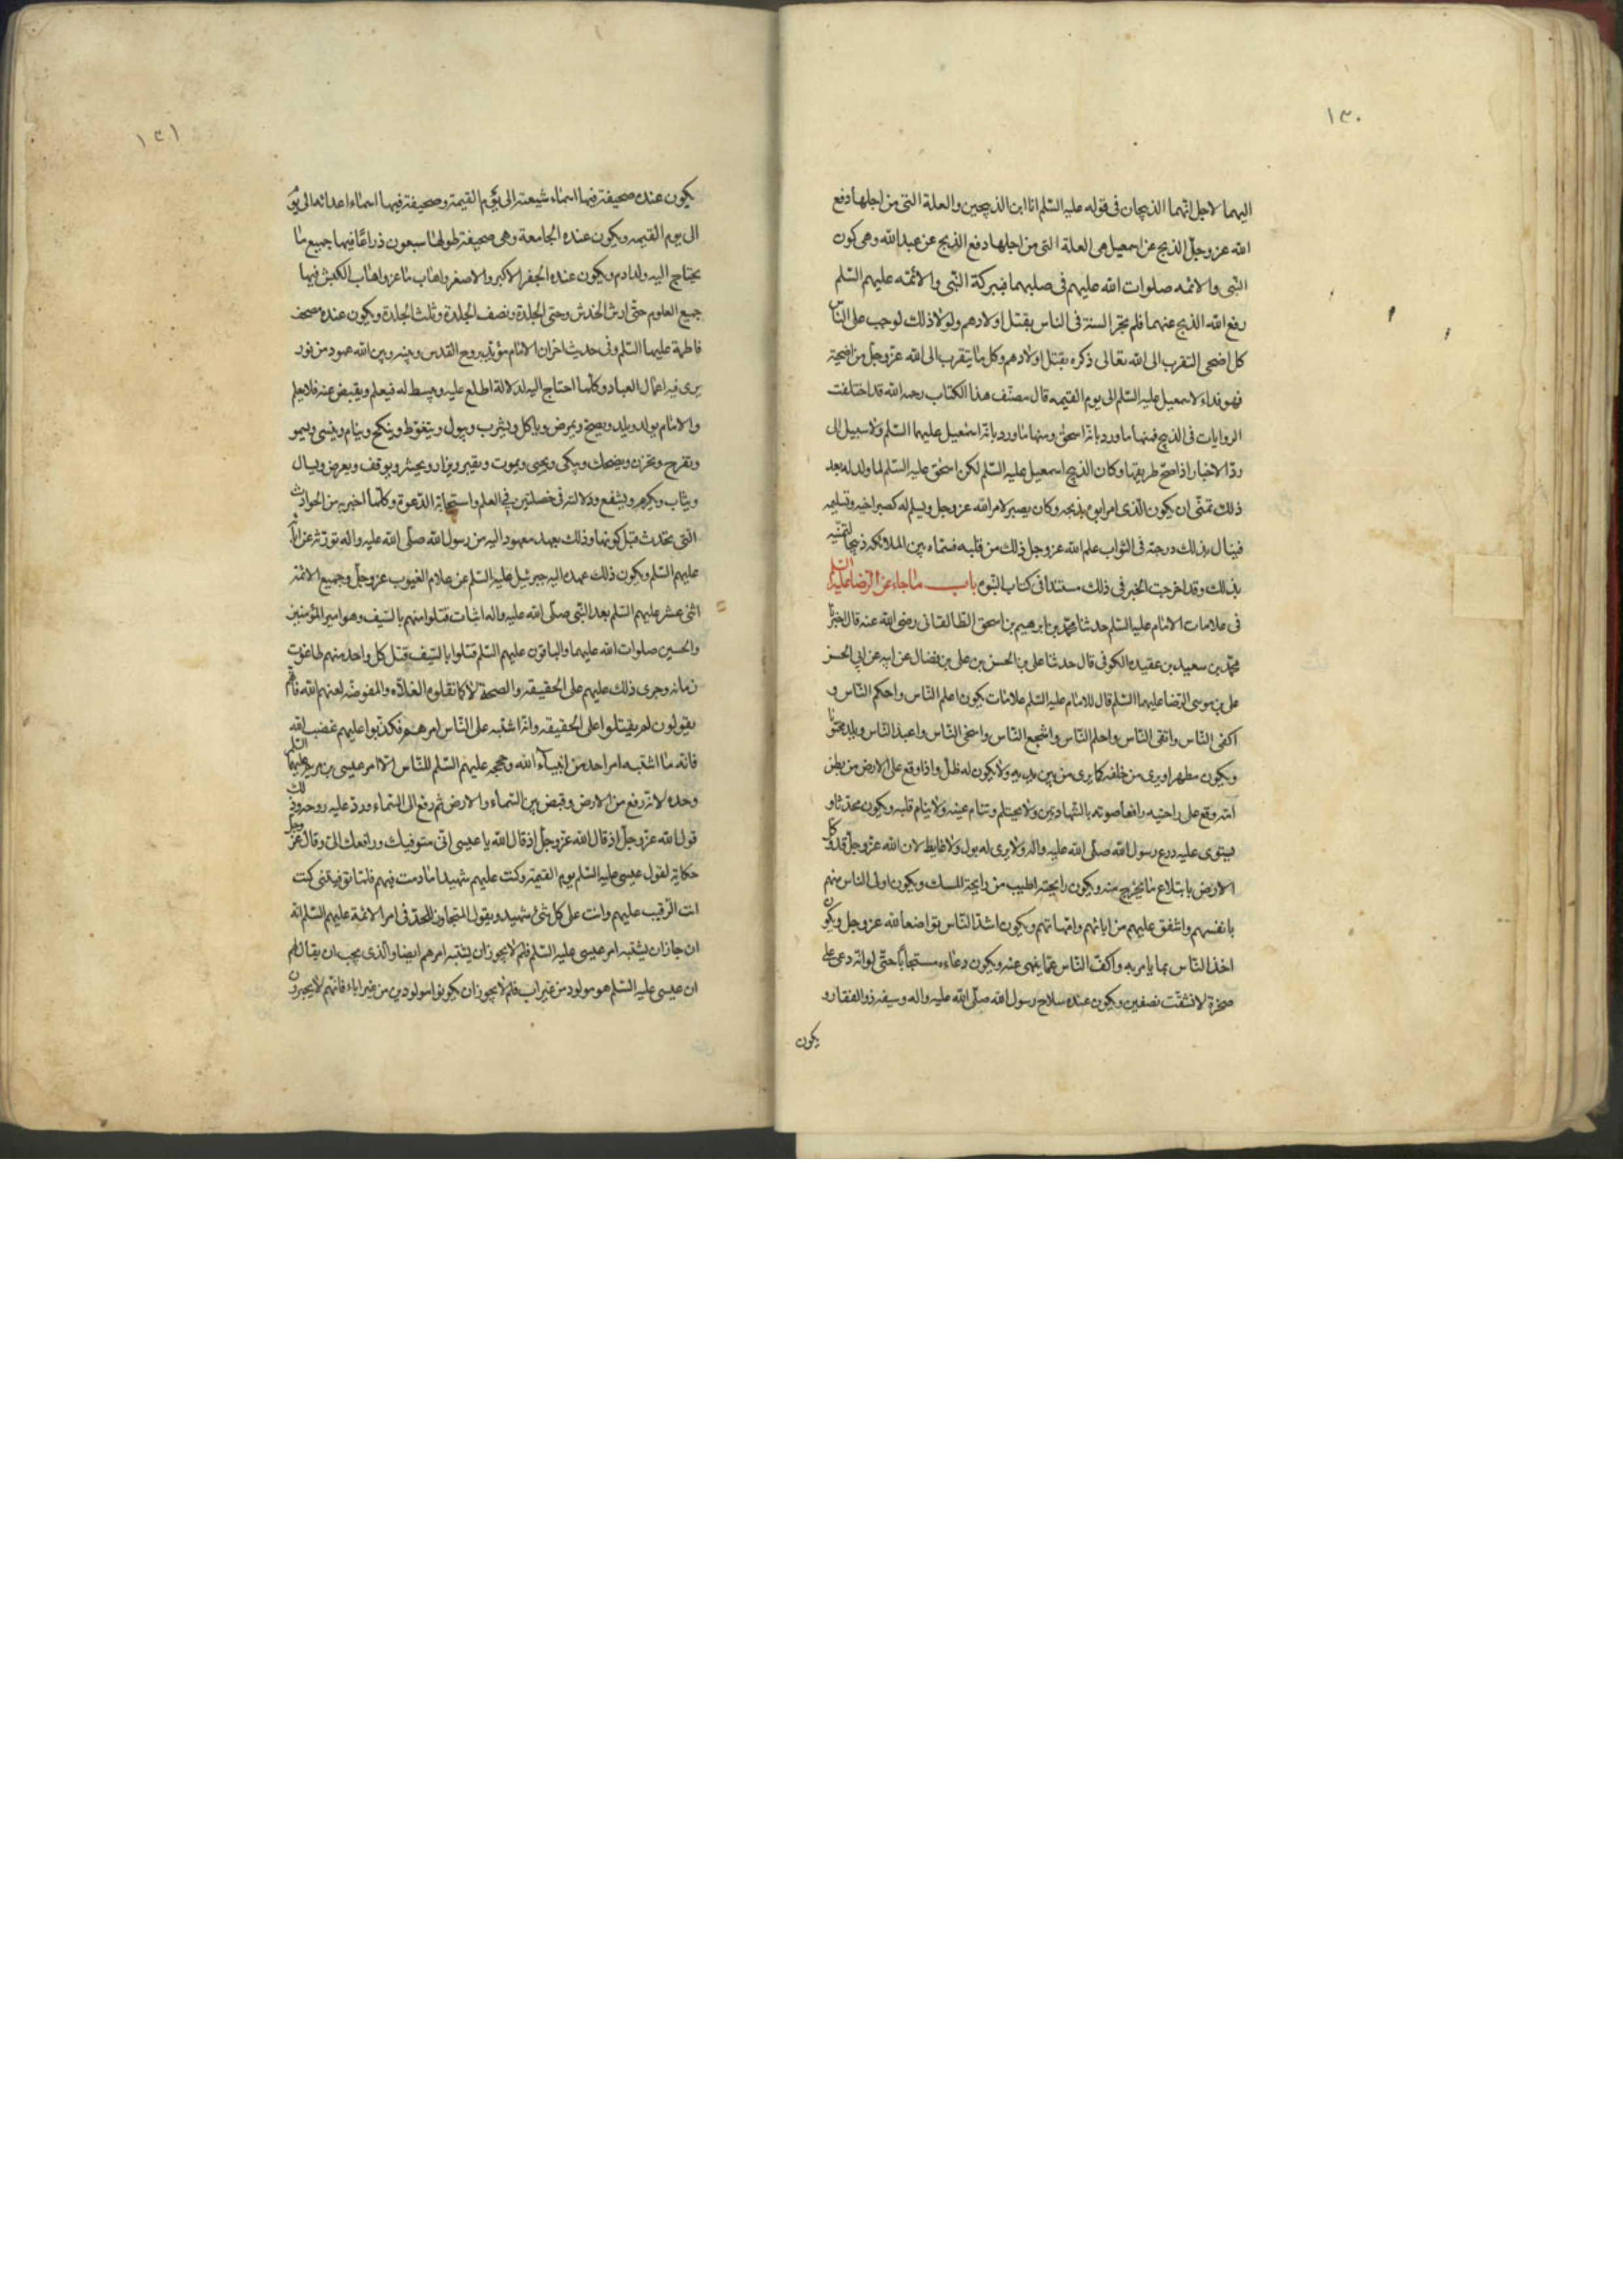 ١٣٠
اليهما لاجل انهما الذبيحان فى قوله عليه السّلم انا ابن الذبيحين والعلة التى من اجلها دفع
الله عز وجلّ الذبح عن اسمعيل هى العلة التى من اجلها دفع الذبح عن عبد الله وهى كون
النّبى والائمه صلوات الله عليهم فى صلبهما فببركة النّبى والائمّه عليهم السّلم
رفع الله الذبح عنهما فلم تجر السنة فى الناس بقتل اولادهم ولولا ذلك لوجب على النّاس
كل اضحى التقرب الى الله تعالى ذكره بقتل اولادهم وكل ما يتقرب الى الله عزّ وجلّ من اضحية
فهو فداء لاسمعيل عليه السّلم الى يوم القيمه قال مصنّف هذا الكتاب رحمه الله قد اختلفت
الروايات فى الذبيح فمنها ما ورد بانّه اسحق ومنها ما ورد بانّه اسمعيل عليهما السّلم ولا سبيل الى
ردّ الاخبار اذا صحّ طريقها وكان الذبيح اسمعيل عليه السّلم لكن اسحق عليه السّلم لما ولد له بعد
ذلك تمنّى ان يكون الّذى امر ابوه بذبحه وكان يصبر لامر الله عز وجل ويسلم له كصبر اخيه وتسليمه
فينال بذلك درجته فى الثواب علم الله عز وجل ذلك من قلبه فسماه بين الملائكه ذبيحا لتمنّيه
بذلك وقد اخرجت الخبر فى ذلك مسندا فى كتاب النّبوه باب ما جاء عن الرّضا عليه السّلم
فى علامات الامام عليه السّلم حدثنا محمّد بن ابرهيم بن اسحق الطّالقانى رضى الله عنه قال اخبرنا
محمّد بن سعيد بن عقيده الكوفى قال حدثنا على بن الحسن بن على بن فضال عن ابيه عن ابى الحسن
على بن موسى الرّضا عليهما السّلم قال للامام عليه السّلم علامات يكون اعلم النّاس واحكم النّاس و
اكفى النّاس واتقى النّاس واحلم النّاس واشجع النّاس واسخى النّاس واعبد النّاس ويلد مختونا
ويكون مطهرا ويرى من خلفه كما يرى من بين يديه ولا يكون له ظلّ واذا وقع على الارض من بطن
امّه وقع على راحتيه رافعا صوته بالشّهادتين ولا يحتلم وتنام عينه ولا ينام قلبه ويكون محدثا و
يستوى عليه درع رسول الله صلّى الله عليه واله ولا يرى له بول ولا غايط لان الله عزّ وجلّ قد وكل
الارض بابتلاع ما يخرج منه ويكون رايحته اطيب من رايحة المسك ويكون اولى الناس منهم
بانفسهم واشفق عليهم من ابائهم وامّهاتهم ويكون اشدّ النّاس تواضعا لله عز وجل ويكون
اخذ النّاس بما يامر به واكفّ النّاس عمّا ينهى عنه ويكون دعاءه مستجابا حتّى لو انّه دعى على
صخرة لانشقت نصفين ويكون عنده سلاح رسول الله صلّى الله عليه واله وسيفه ذو الفقار و
يكون
١٣١
يكون عنده صحيفة فيها اسماء شيعته الى يوم القيمة وصحيفة فيها اسماء اعدائه الى يو
الى يوم القيمه ويكون عنده الجامعة وهى صحيفة طولها سبعون ذراعًا فيها جميع ما
يحتاج اليه ولد ادم ويكون عنده الجفر الاكبر والاصغر واهاب ماعز واهاب الكبش فيها
جميع العلوم حتّى ارش الخدش وحتى الجلدة ونصف الجلدة وثلث الجلدة ويكون عنده مصحف
فاطمة عليها السّلم وفى حديث اخر ان الامام مؤيّد بروح القدس وبينه وبين الله عمود من نور
يرى فيه اعمال العباد وكلّما احتاج اليه لدلالة اطلع عليه ويبسط له فيعلم ويقبض عنه فلا يعلم
والامام يولد ويلد ويصحّ ويمرض وياكل ويشرب ويبول ويتغوّط وينكح وينام وينسى ويسهو
ويفرح ويحزن ويضحك ويبكى ويحيى ويموت ويقبر ويزار ويحشر ويوقف ويعرض ويسال
ويثاب ويكرم ويشفع ودلالته فى خصلتين فى العلم واستجابة الدّعوة وكلّما اخبر به من الحوادث
التى تحدث قبل كونها وذلك بعهد معهود اليه من رسول الله صلّى الله عليه واله توارثه عن ابائه
عليهم السّلم ويكون ذلك عهده اليه جبرئيل عليه السّلم عن علام الغيوب عز وجلّ وجميع الائمّة
اثنى عشر عليهم السّلم بعد النّبى صلّى الله عليه واله اثبات قتلوا منهم بالسّيف وهو امير المؤمنين
والحسين صلوات الله عليهما والباقون عليهم السّلم قتلوا بالسّيف قتل كل واحد منهم طاغوت
زمانه وجرى ذلك عليهم على الحقيقه والصحّة لا كما تقوله الغلاه والمفوضه لعنهم الله فانهم
يقولون لم يقتلوا على الحقيقه وانّه اشتبه على النّاس امرهم فكذبوا عليهم غضب الله
فانّه ما اشتبه امر احد من انبياء الله وحججه عليهم السّلم للنّاس الّا امر عيسى بن مريم عليهما السّلم
وحده لانّه رفع من الارض وقبض بين السّماء والارض ثم رفع الى السّماء وردّ عليه روحه وذلك
قول الله عزّ وجلّ اذ قال الله عزّ وجلّ اذ قال الله يا عيسى انّى متوفيك ورافعك الىّ وقال عزّ وجلّ
حكاية لقول عيسى عليه السّلم يوم القيمة وكنت عليهم شهيدا ما دمت فيهم فلمّا توفيتنى كنت
انت الرّقيب عليهم وانت على كل شئ شهيد ويقول المتجاوزن للحدّ فى امر الائمّة عليهم السّلم انّه
ان جاز ان يشتبه امر عيسى عليه السّلم فلم لا يجوز ان يشتبه امرهم ايضا والذى يجب ان يقال لهم
ان عيسى عليه السّلم هو مولود من غير اب فلم لا يجوز ان يكونوا مولودين من غير اباء فانّهم لا يجسرون